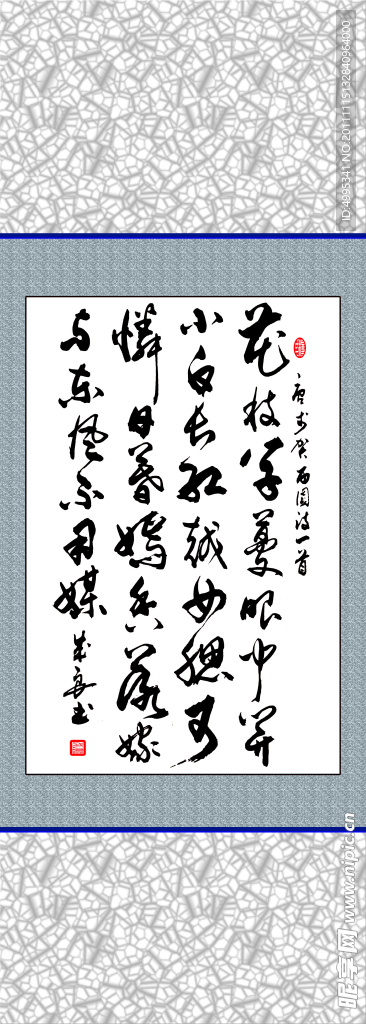 唐李贺南园诗一首
花枝草蔓眼中开
小白长红越女腮可
憐日暮嫣香落嫁
与东风不用媒
书
ID:4995341 NO:20111115132840964000
昵享网 www.nipic.cn